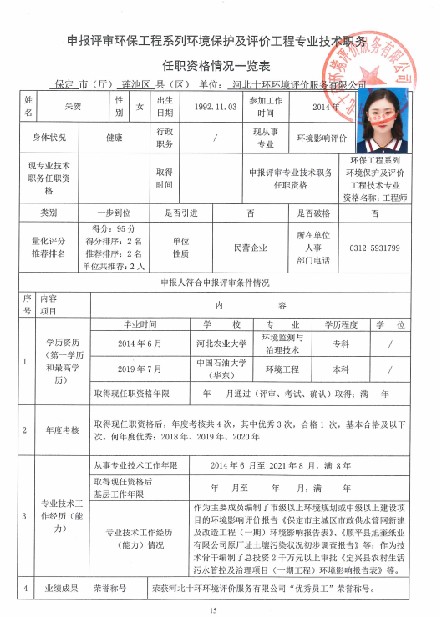 申报评审环保工程系列环境保护及评价工程专业技术职务
任职资格情况一览表
保定 市（厅） 莲池区 县（区） 单位：河北十环环境评价服务有限公司
姓名 性别 女 出生日期 1992.11.03 参加工作时间 2014年
身体状况 健康 行政职务 / 现从事专业 环境影响评价
现专业技术职务任职资格 取得时间 申报评审专业技术职务任职资格 环保工程系列环境保护及评价工程技术专业资格名称：工程师
类别 一步到位 是否引进 否 是否破格 否
量化评分推荐排名 得分：95分 得分排序：2名 推荐排序：2名 单位共推荐：2人 单位性质 民营企业 所在单位人事部门电话 0312-5931799
申报人符合申报评审条件情况
序号 内容项目 内 容
1 学历资历（第一学历和最高学历） 毕业时间 学 校 专 业 学历程度 学 位
2014年6月 河北农业大学 环境监测与治理技术 专科 /
2019年7月 中国石油大学（华东） 环境工程 本科 /
取得现任职资格年限 年 月通过（评审、考试、确认）取得，满 年
2 年度考核 取得现任职资格后，年度考核共4次，其中优秀3次，合格1次，基本合格及以下
次。何年度优秀：2018年、2019年、2020年
3 专业技术工作经历（能力） 从事专业技术工作年限 2014年6月至2021年8月，满8年
取得现任资格后基层工作年限 年 月至 年 月，满 年
专业技术工作经历（能力）情况 作为主要成员编制了市级以上环境规划或中级以上建设项
目的环境影响评价报告《保定市主城区市政供水管网新建
及改造工程（一期）环境影响报告表》、《顺平县
有限公司原厂址土壤污染状况初步调查报告》等；作为技
术骨干编制了总投资2千万元以上审批《定兴县农村生活
污水管控及治理项目（一期工程）环境影响报告表》等。
4 业绩成果 荣誉称号 荣获河北十环环境评价服务有限公司“优秀员工”荣誉称号。